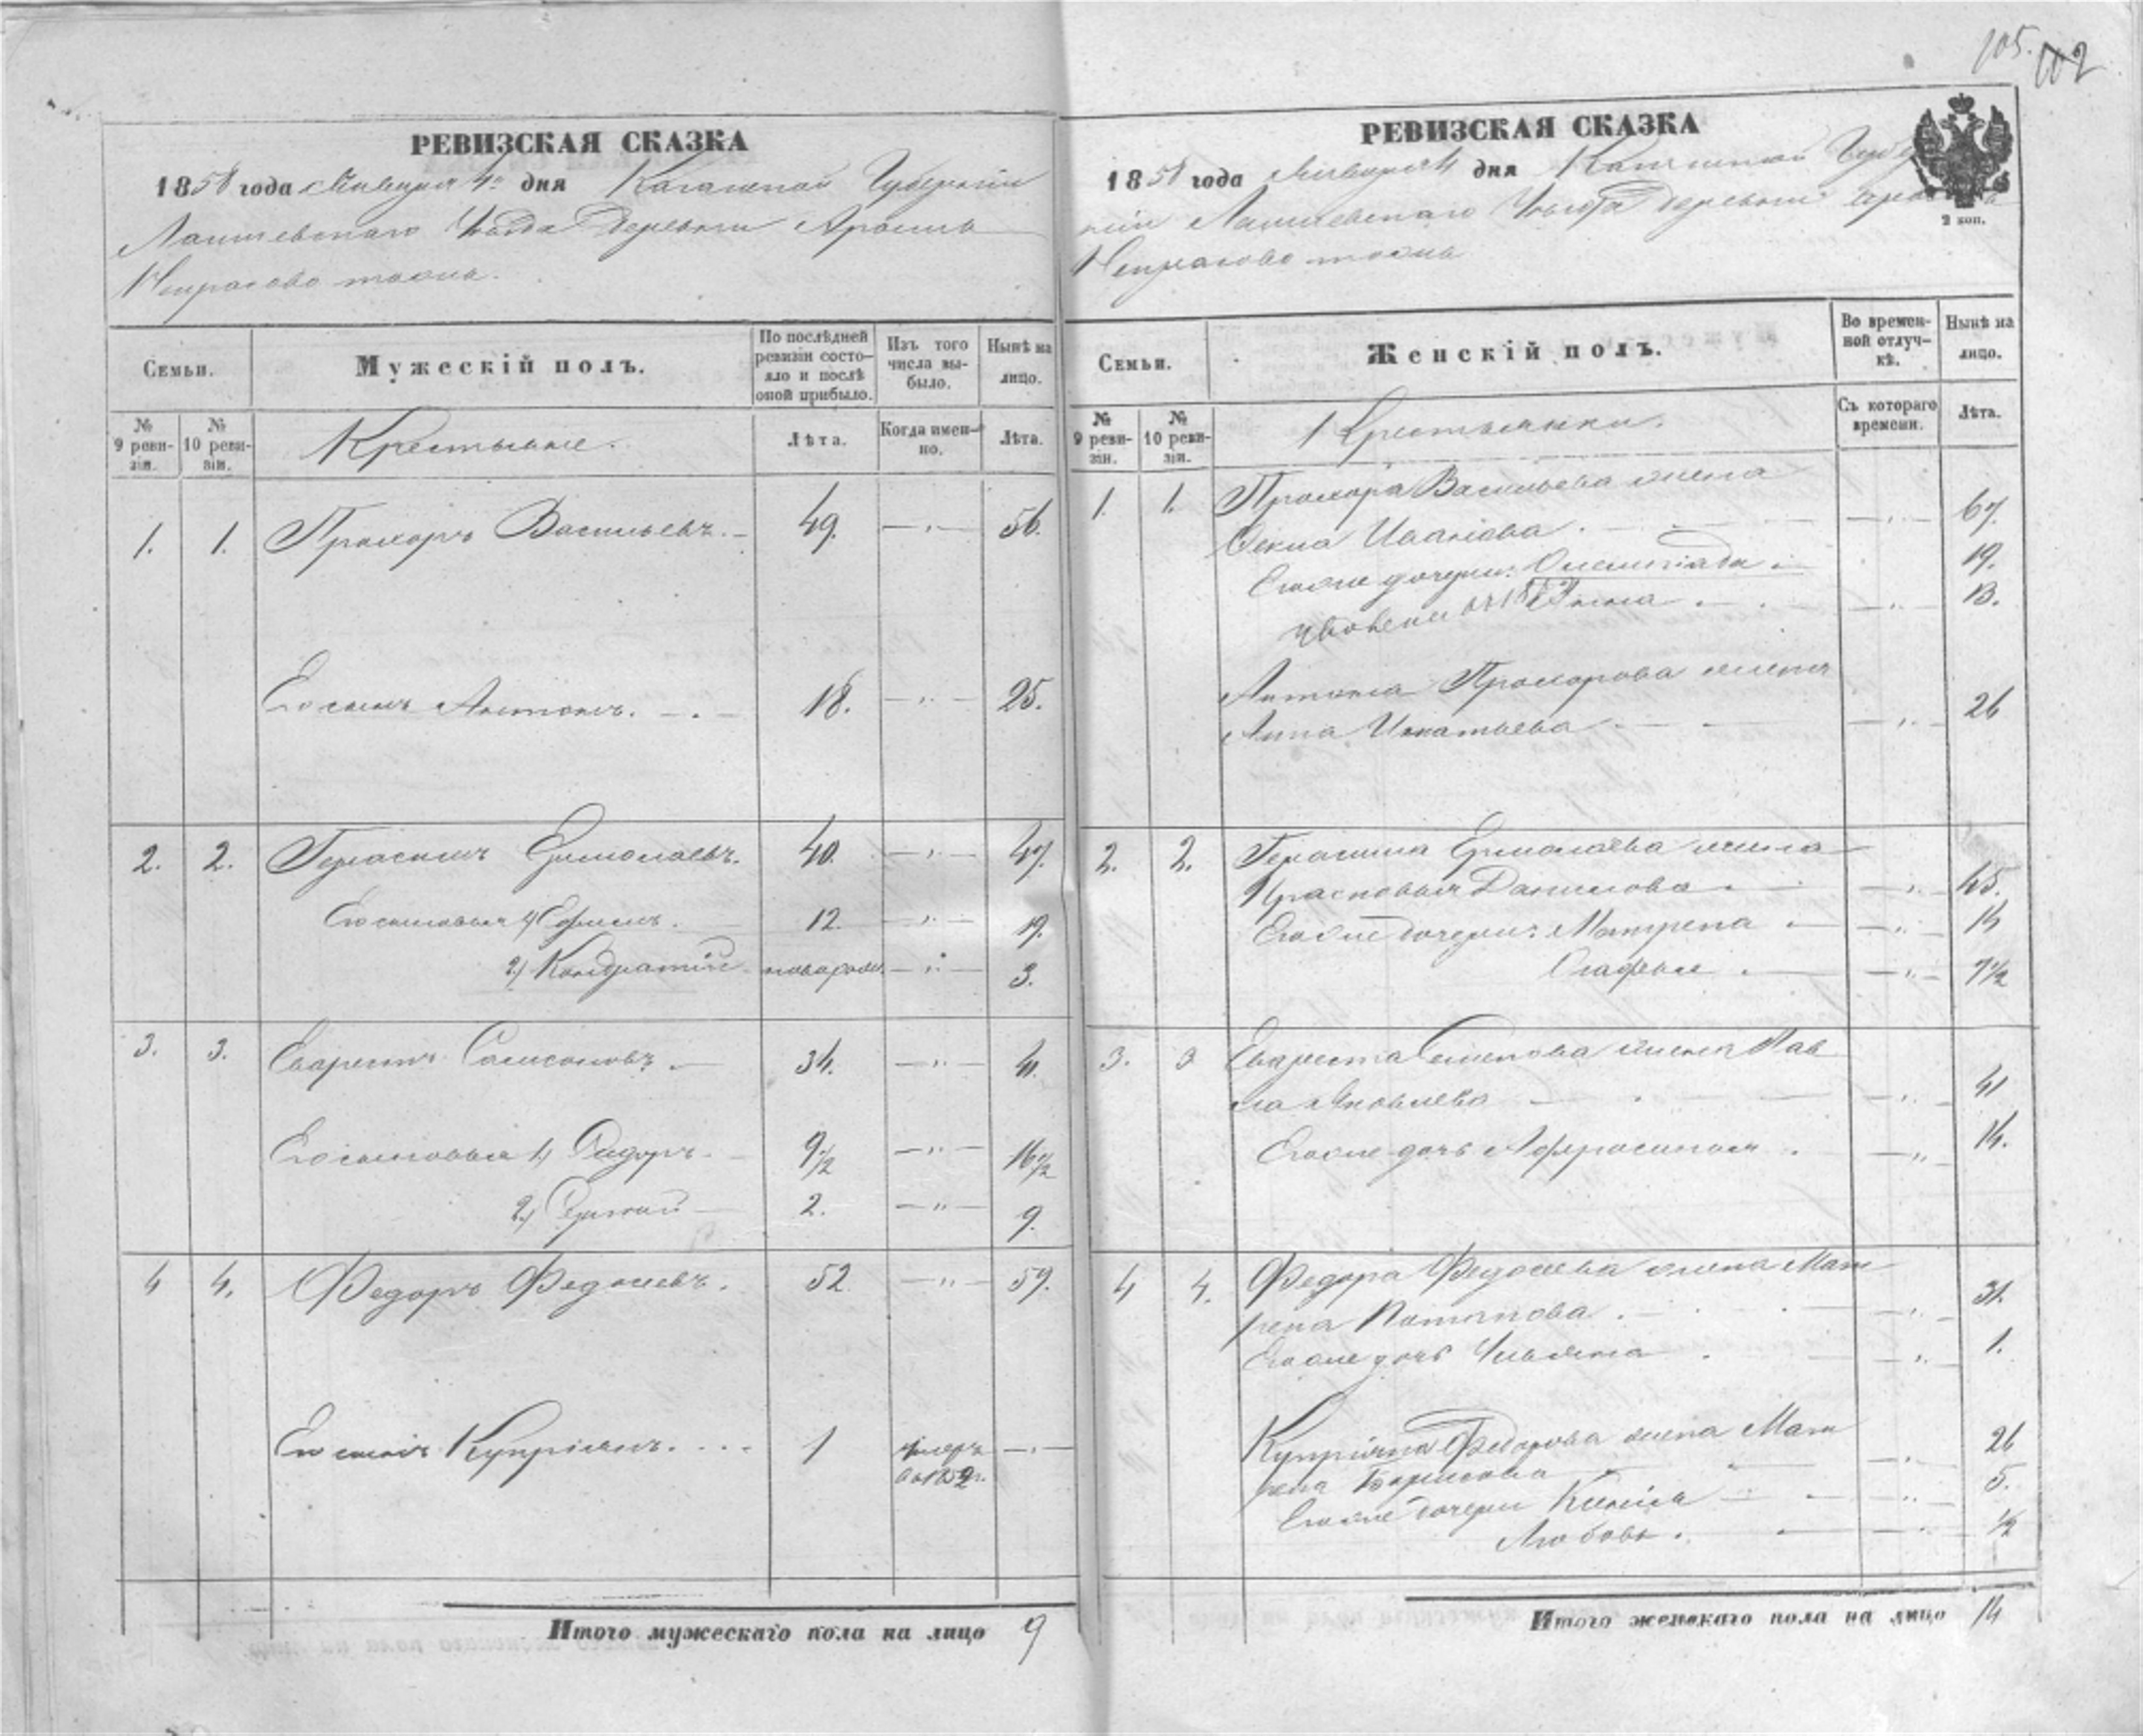 105. 102
РЕВИЗСКАЯ СКАЗКА
1858 года Января 4го дня Казанской Губернии
Лаишевскаго Уѣзда Деревни
Семьи.
Мужескій полъ.
По послѣдней ревизіи состояло и послѣ оной прибыло.
Изъ того числа выбыло.
Нынѣ на лицо.
№ 9 ревизіи.
№ 10 ревизіи.
Крестьяне.
Лѣта.
Когда именно.
Лѣта.
1. 1. Прохоръ Васильевъ. 49. — „ — 56.
Его сынъ Антонъ. 18. — „ — 25.
2. 2. Герасимъ Ермолаевъ. 40. — „ — 47.
Его сыновья 1) Ефимъ. 12. — „ — 19.
2) Кондратій новорож. — „ — 3.
3. 3. Еварестъ Самсоновъ. 34. — „ — 41.
Его сыновья 1) Сидоръ. 9 1/2 — „ — 16 1/2
2) Сергей 2. — „ — 9.
4 4. Федоръ Федосеевъ. 52 — „ — 59.
Его сынъ Купріянъ. 1 умеръ — „ —
Итого мужескаго пола на лицо 9
РЕВИЗСКАЯ СКАЗКА
1858 года Января 4 дня Казанской Губер
ніи Лаишевскаго Уѣзда Деревни
2 коп.
Семьи.
Женскій полъ.
Во временной отлучкѣ.
Нынѣ на лицо.
№ 9 ревизіи.
№ 10 ревизіи.
Крестьянки.
Съ котораго времени.
Лѣта.
1. 1. Прохора Васильева жена
Фекла Иванова. — „ — 67.
Его же дочери: Олимпіада 19.
Анна — „ — 13.
Антона Прохорова жена
Анна Игнатьева — „ — 26
2. 2. Герасима Ермолаева жена
Прасковья Данилова. — „ — 45.
Его же дочери: Матрена — „ — 14
Агафья — „ — 7 1/2
3. 3 Евареста жена Пав
ла Яковлева — „ — 41
Его же дочь Афросинья — „ — 14.
4 4. Федора Федосеева жена Мат
рена Потапова. — „ — 31.
Его же дочь Ульяна — „ — 1.
Купріяна Федорова жена Мат
рена Борисова — „ — 26
Его же дочери — „ — 5.
Любовь. — „ — 1/2
Итого женскаго пола на лицо 14